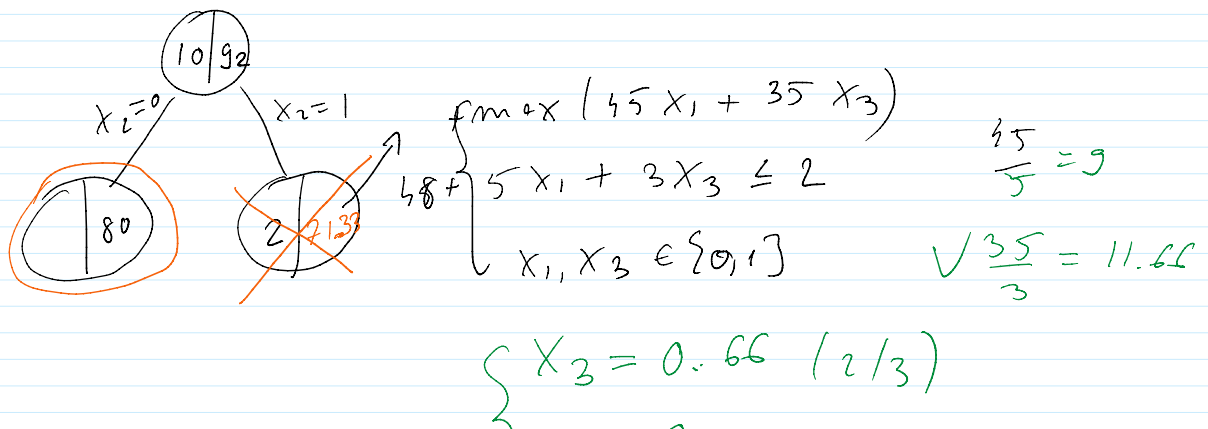 10 | 92
x₂=0 x₂=1
80
2 | 71.33
48 + { max (45 x₁ + 35 x₃)
5 x₁ + 3 x₃ ≤ 2
x₁, x₃ ∈ {0,1}
45/5 = 9
√ 35/3 = 11.66
{ x₃ = 0.66 (2/3)